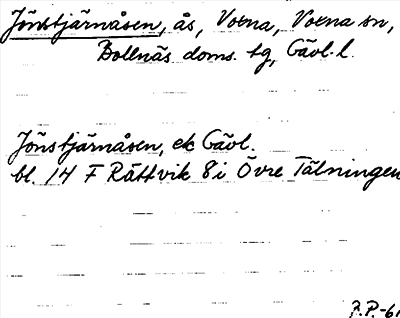 Jönstjärnåsen, ås, Voxna, Voxna sn,
Bollnäs doms. tg, Gävl. l.
Jönstjärnåsen, ek Gävl.
bl. 14 F Rättvik 8 i Övre Tälningen
J.P.-61